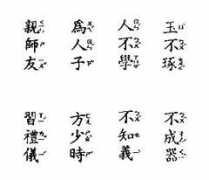 玉不琢
不成器
人不學
不知義
為人子
方少時
親師友
習禮儀